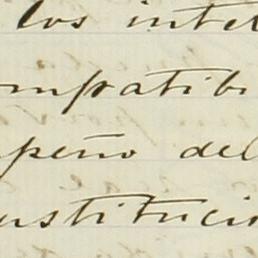 los intel
ompatibi
peño del
nstituci